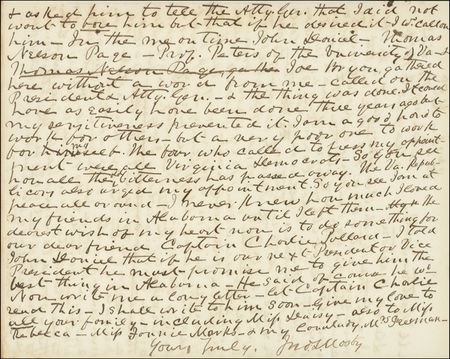 & asked him to tell the Atty. Gen. that I did not
want to bore him but that if he desired it I wd. call on
him - In the meantime John Daniel - Thomas
Nelson Page - Prof. Peters of the University of Va &
Thomas Nelson Page, gathe Joe Bryan, gathered
here without a word from me - called on the
President & Atty. Gen. - & the thing was done. I could
have as easily have been done three years ago but
my sensitiveness prevented it. I am a good hand to
work for others - but a very poor one to work
for himself. The four who called to press my appoint-
ment - were all Virginia Democrats - So you see
how all the bitterness has passed away. The Va Repub-
licans also urged my appointment. So you see I am at
peace all around - I never knew how much I loved
my friends in Alabama until I left them - The
dearest wish of my heart now is to do something for
our dear friend Captain Charlie Pollard - I told
John Daniel that if he is our next President or Vice
President he must promise me to give him the
best thing in Alabama - He said of course he wd
Now write me a long letter - let Captain Charlie
read this - I shall write to him soon - Give my love to
all your family - including Miss - also to Miss
Rebecca - Miss Fannie Marks - & my Mrs
Yours truly, Jno S Mosby